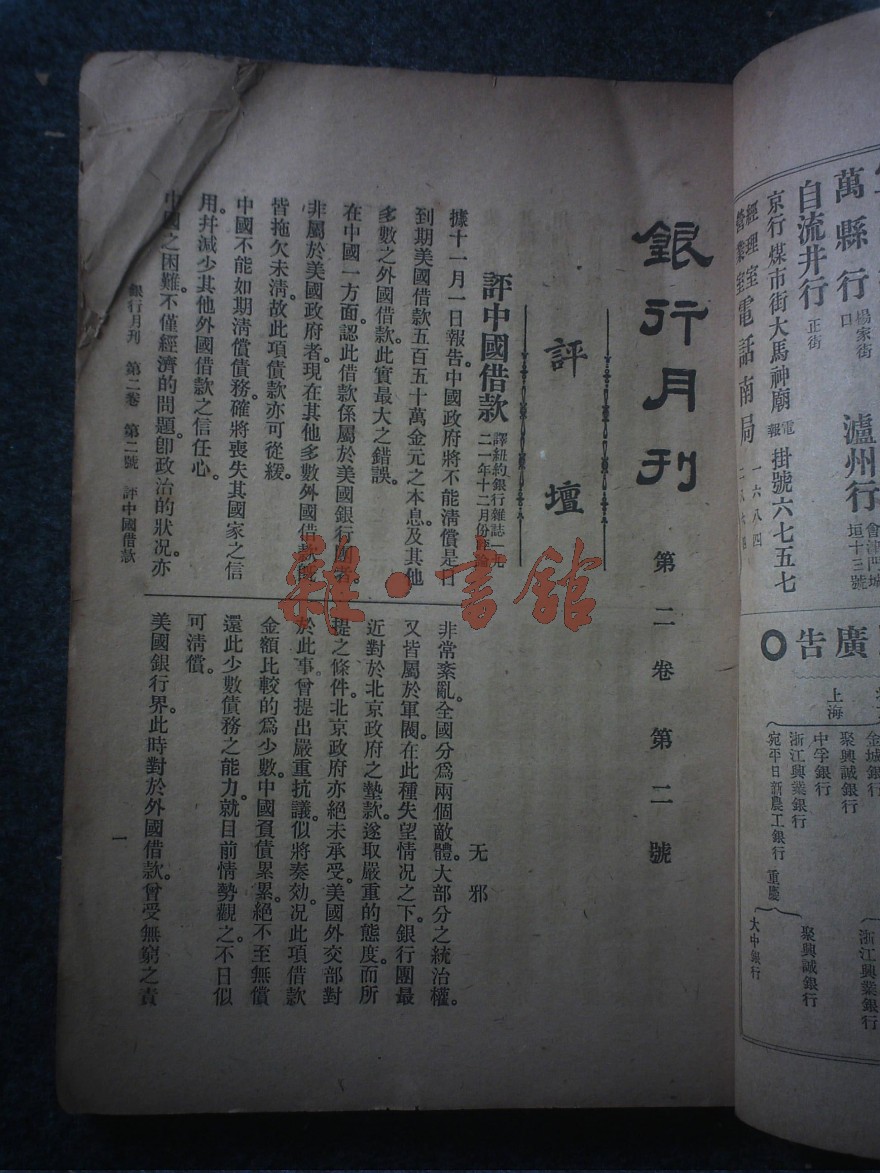 銀行月刊
第二卷 第二號
評壇
評中國借款
譯紐約銀行雜誌一九
二一年十二月份評論
无邪
據十一月一日報告。中國政府將不能淸償是日
到期美國借款五百五十萬金元之本息。及其他
多數之外國借款。此實最大之錯誤。
在中國一方面。認此借款係屬於美國銀行團者。
非屬於美國政府者。現在其他多數外國借款旣
皆拖欠未淸。故此項債款亦可從緩。
中國不能如期淸償債務。確將喪失其國家之信
用。幷減少其他外國借款之信任心。
中國之困難。不僅經濟的問題。卽政治的狀況。亦
非常紊亂。全國分爲兩個敵體。大部分之統治權。
又皆屬於軍閥。在此種失望情况之下。銀行團最
近對於北京政府之墊款。遂取嚴重的態度。而所
提之條件。北京政府亦絕未承受。美國外交部對
於此事。曾提出嚴重抗議。似將奏効。况此項借款
金額比較的爲少數。中國負債累累。絕不至無償
還此少數債務之能力。就目前情勢觀之。不日似
可淸償。
美國銀行界。此時對於外國借款。曾受無窮之責
銀行月刊 第二卷 第二號 評中國借款
一
雜·書館
萬縣行
楊家街
口
瀘州行
會津門城
垣十三號
自流井行
正街
京行 煤市街大馬神廟
電報掛號六七五七
經理室
營業室
電話南局
一六八四
廣告
上海
金城銀行
聚興誠銀行
中孚銀行
浙江興業銀行
宛平日新農工銀行
重慶
浙江興業銀行
聚興誠銀行
大中銀行